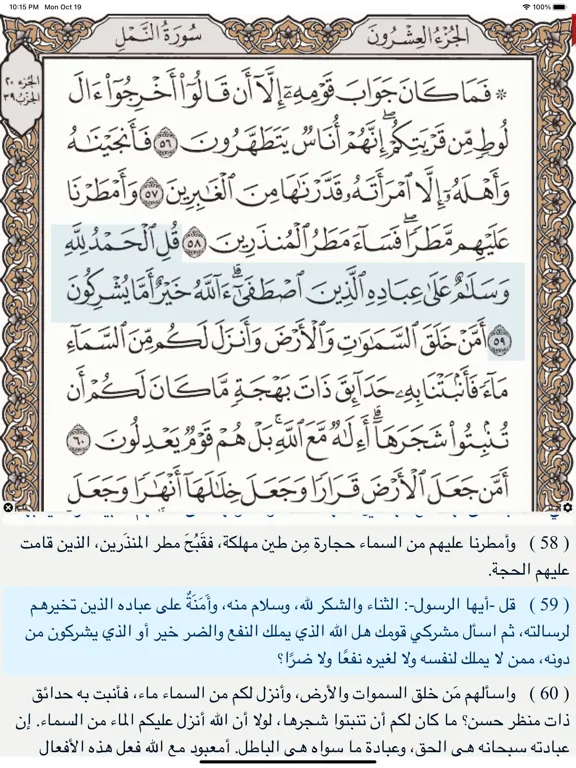 10:15 PM Mon Oct 19
100%
الجُزْءُ العِشْرُونَ
سُورَةُ النَّمْلِ
الجُزْء ٢٠
الحِزْبُ ٣٩
۞ فَمَا كَانَ جَوَابَ قَوْمِهِۦٓ إِلَّآ أَن قَالُوٓا۟ أَخْرِجُوٓا۟ ءَالَ
لُوطٍ مِّن قَرْيَتِكُمْ ۖ إِنَّهُمْ أُنَاسٌ يَتَطَهَّرُونَ ٥٦ فَأَنجَيْنَـٰهُ
وَأَهْلَهُۥٓ إِلَّا ٱمْرَأَتَهُۥ قَدَّرْنَـٰهَا مِنَ ٱلْغَـٰبِرِينَ ٥٧ وَأَمْطَرْنَا
عَلَيْهِم مَّطَرًا ۖ فَسَآءَ مَطَرُ ٱلْمُنذَرِينَ ٥٨ قُلِ ٱلْحَمْدُ لِلَّهِ
وَسَلَـٰمٌ عَلَىٰ عِبَادِهِ ٱلَّذِينَ ٱصْطَفَىٰٓ ۗ ءَآللَّهُ خَيْرٌ أَمَّا يُشْرِكُونَ
٥٩ أَمَّنْ خَلَقَ ٱلسَّمَـٰوَٰتِ وَٱلْأَرْضَ وَأَنزَلَ لَكُم مِّنَ ٱلسَّمَآءِ
مَآءً فَأَنۢبَتْنَا بِهِۦ حَدَآئِقَ ذَاتَ بَهْجَةٍ مَّا كَانَ لَكُمْ أَن
تُنۢبِتُوا۟ شَجَرَهَآ ۗ أَءِلَـٰهٌ مَّعَ ٱللَّهِ ۚ بَلْ هُمْ قَوْمٌ يَعْدِلُونَ ٦٠
أَمَّن جَعَلَ ٱلْأَرْضَ قَرَارًا وَجَعَلَ خِلَـٰلَهَآ أَنْهَـٰرًا وَجَعَلَ
( 58 ) وأمطرنا عليهم من السماء حجارة مِن طين مهلكة، فقَبُحَ مطر المنذَرين، الذين قامت
عليهم الحجة.
( 59 ) قل -أيها الرسول-: الثناء والشكر لله، وسلام منه، وأَمَنَةٌ على عباده الذين تخيرهم
لرسالته، ثم اسأل مشركي قومك هل الله الذي يملك النفع والضر خير أو الذي يشركون من
دونه، ممن لا يملك لنفسه ولا لغيره نفعًا ولا ضرًا؟
( 60 ) واسألهم مَن خلق السموات والأرض، وأنزل لكم من السماء ماء، فأنبت به حدائق
ذات منظر حسن؟ ما كان لكم أن تنبتوا شجرها، لولا أن الله أنزل عليكم الماء من السماء. إن
عبادته سبحانه هي الحق، وعبادة ما سواه هي الباطل. أمعبود مع الله فعل هذه الأفعال